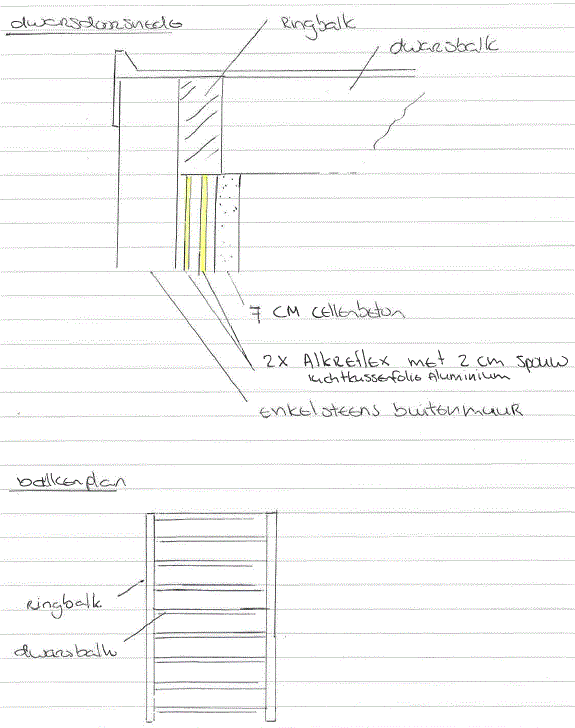 dwarsdoorsnede
Ringbalk
dwarsbalk
7 CM cellenbeton
2x Alkreflex met 2 cm spouw
luchtkussenfolie Aluminium
enkelsteens buitenmuur
balkenplan
Ringbalk
dwarsbalk